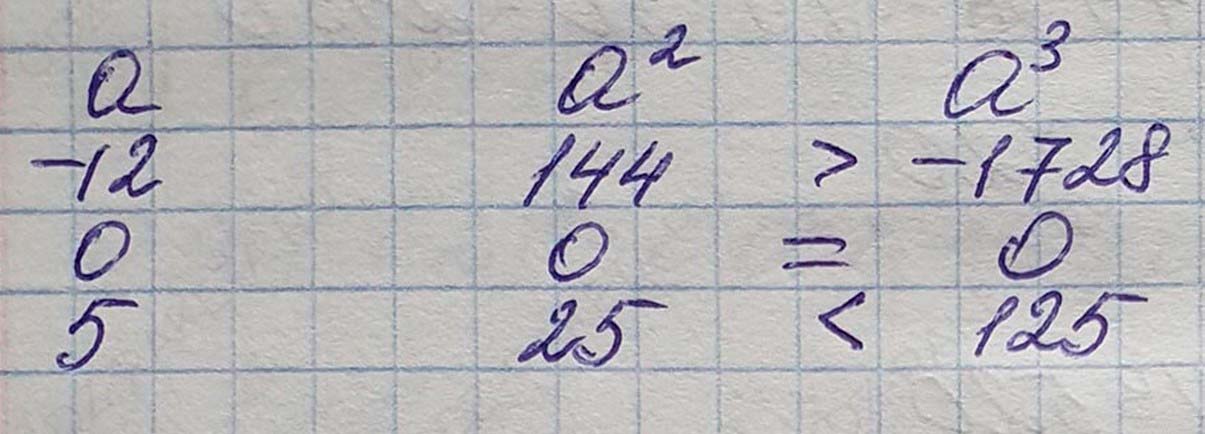 a a² a³
-12 144 > -1728
0 0 = 0
5 25 < 125